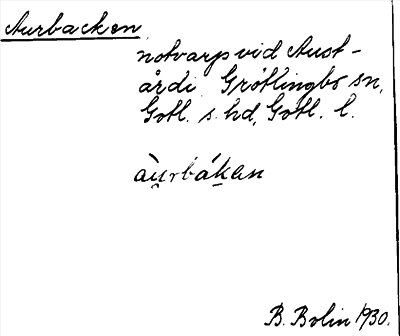 Aurbacken
notvarp vid Aust-
årdi. Grötlingbo sn,
Gotl. s. hd, Gotl. l.
àu̯rbák̯en
B. Bolin 1930.